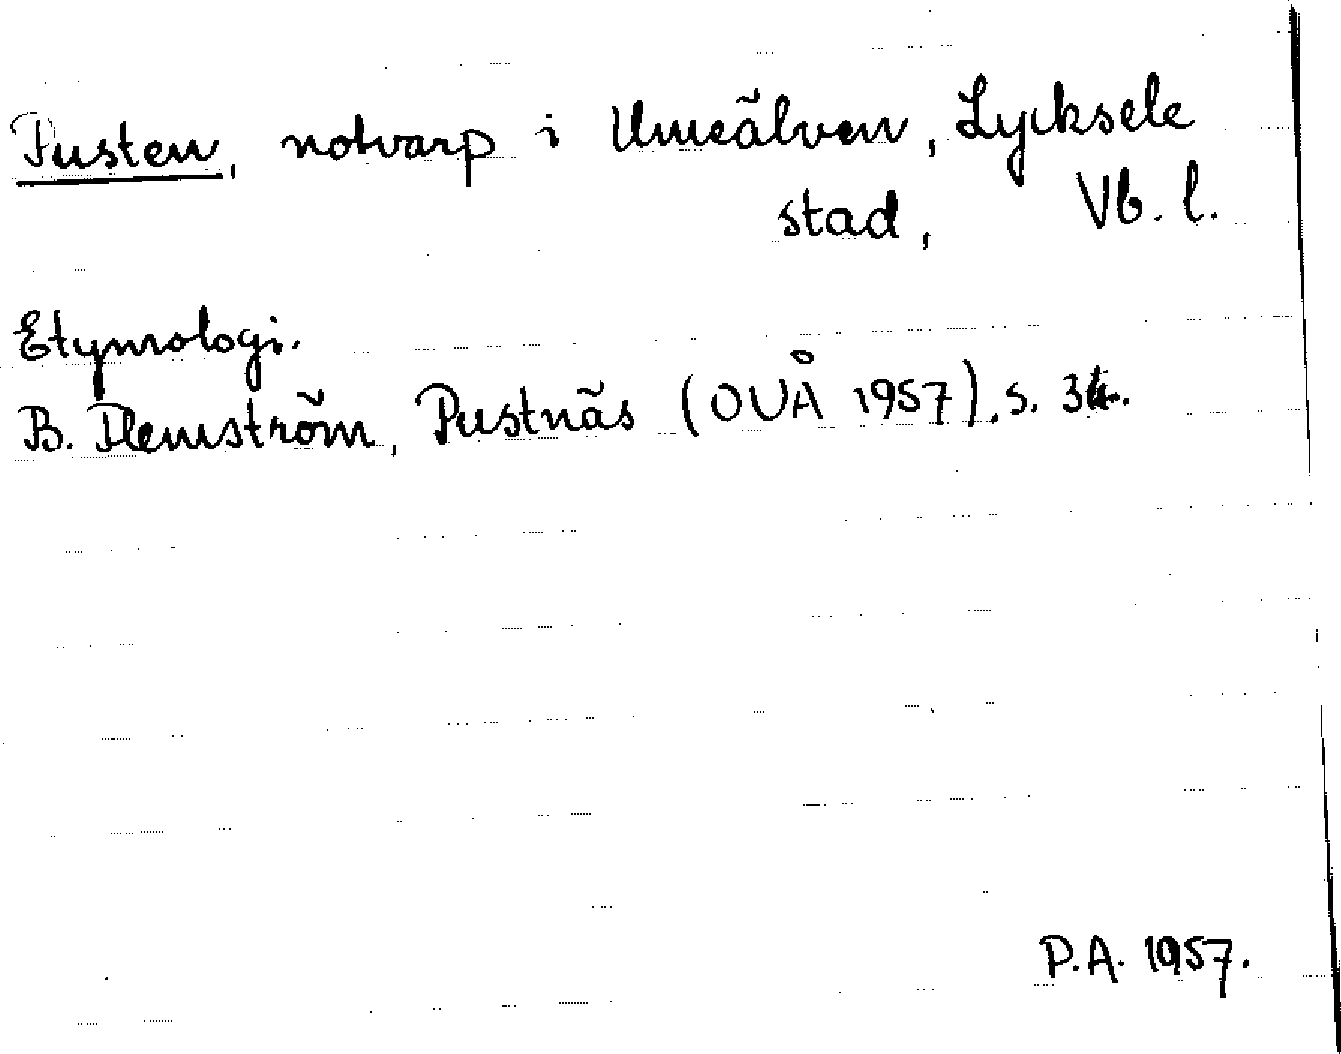 Pusten, notvarp i Umeälven, Lycksele
stad, Vb. l.
Etymologi.
B. Flemström, Pustnäs (OUÅ 1957), s. 34.
P.A. 1957.